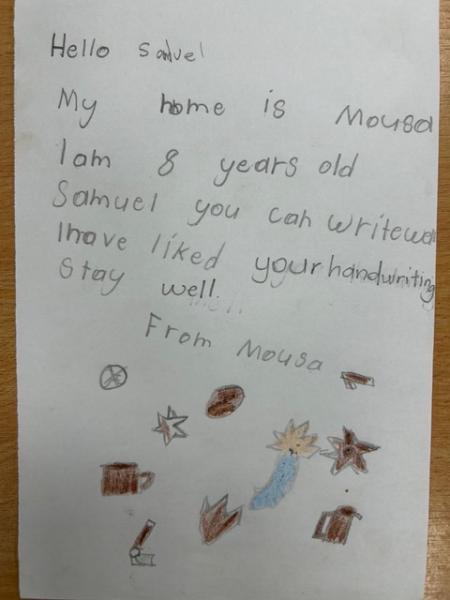 Hello Samuel
My home is Mousa
I am 8 years old
Samuel you can write well
I have liked your handwriting
Stay well.
From Mousa